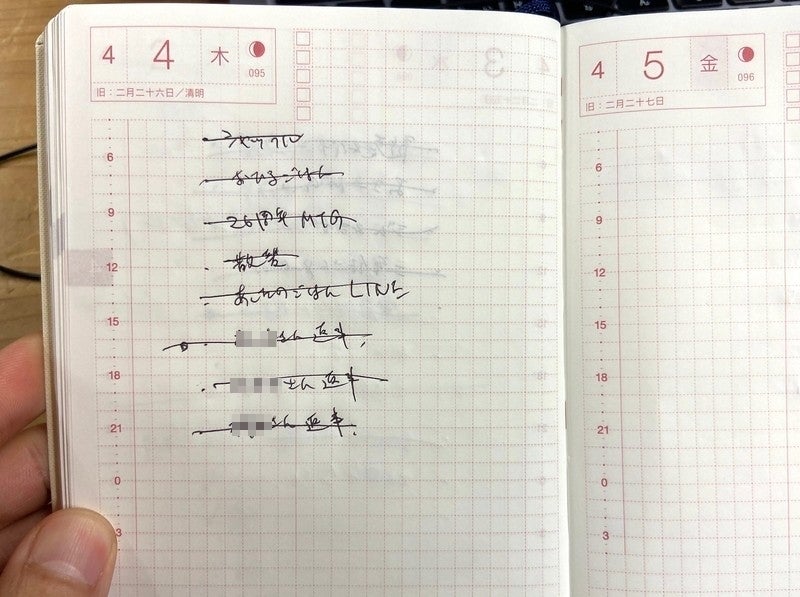 4 4 木
095
旧：二月二十六日／清明
6
9
12
15
18
21
0
3
おひるごはん
26周年 MTG
散歩
あしたのごはん LINE
さん 返事
さん 返事
さん 返事
4 5 金
096
旧：二月二十七日
6
9
12
15
18
21
0
3